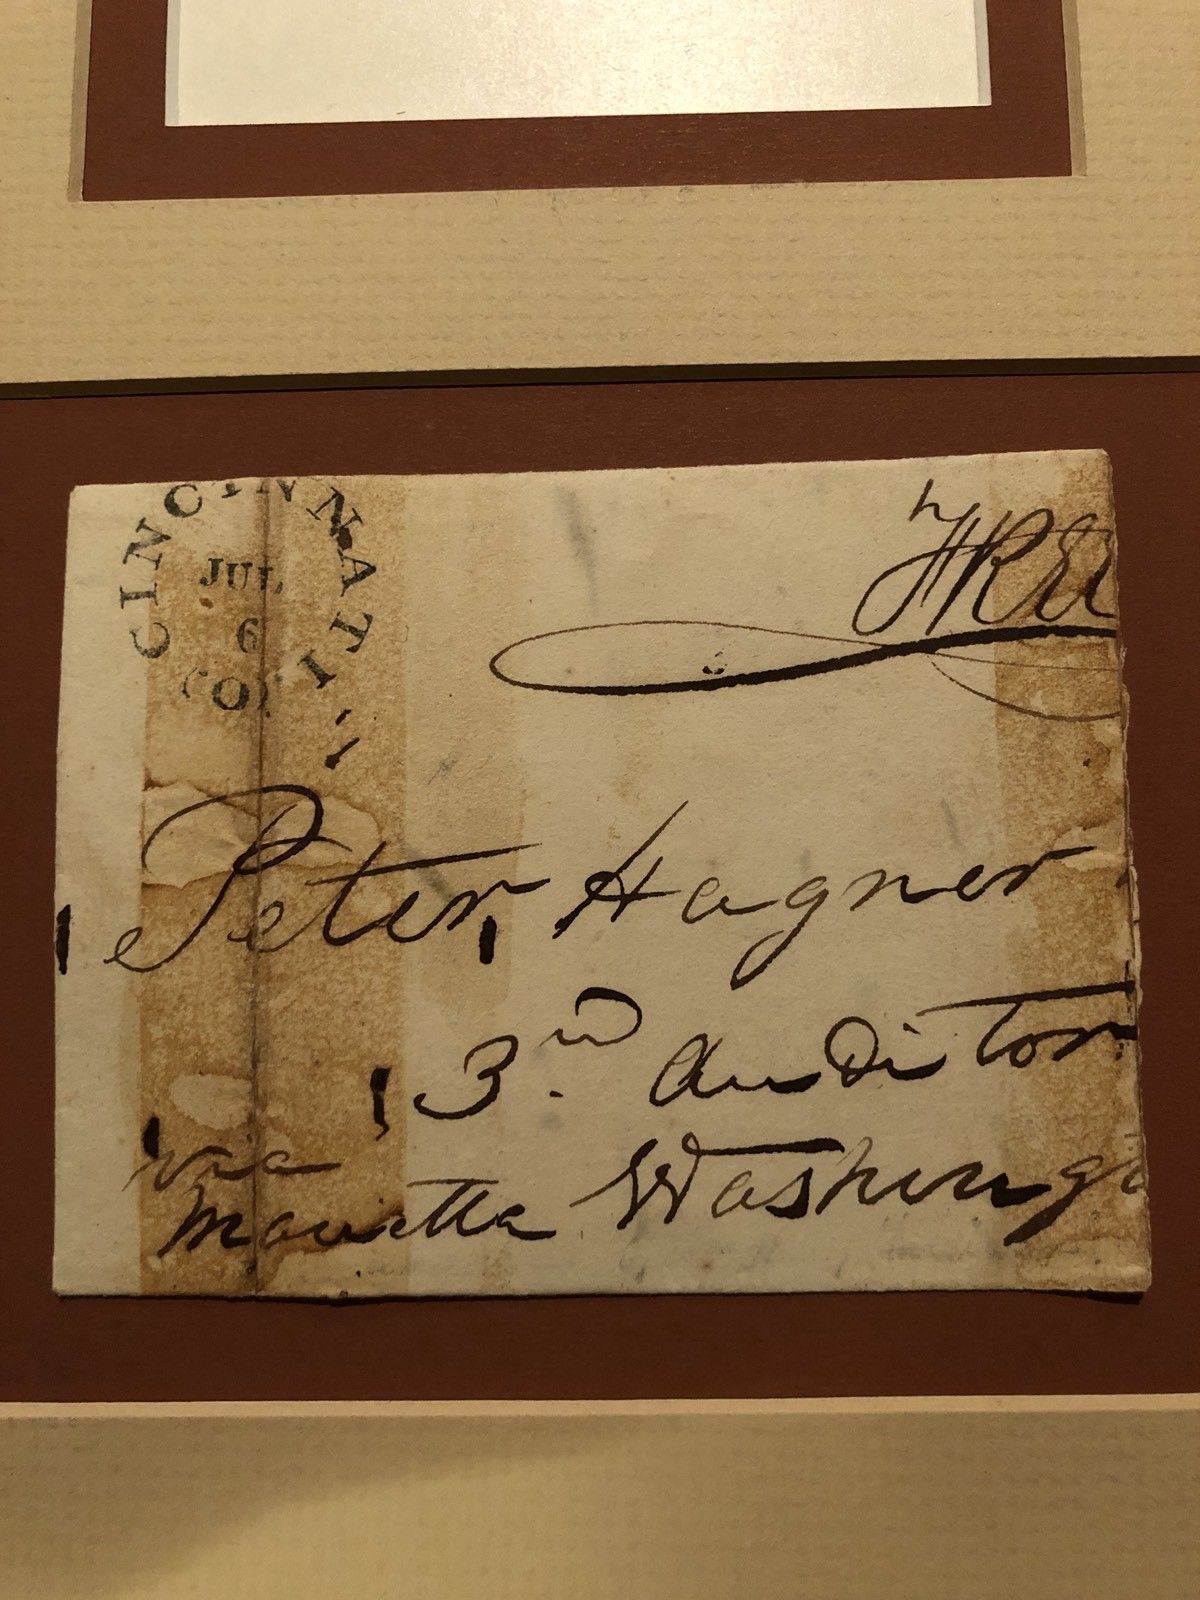 CINCINNATI
JUL
6
(O)
FREE
Peter Hagner
3rd Auditor
via
Marietta Washingt